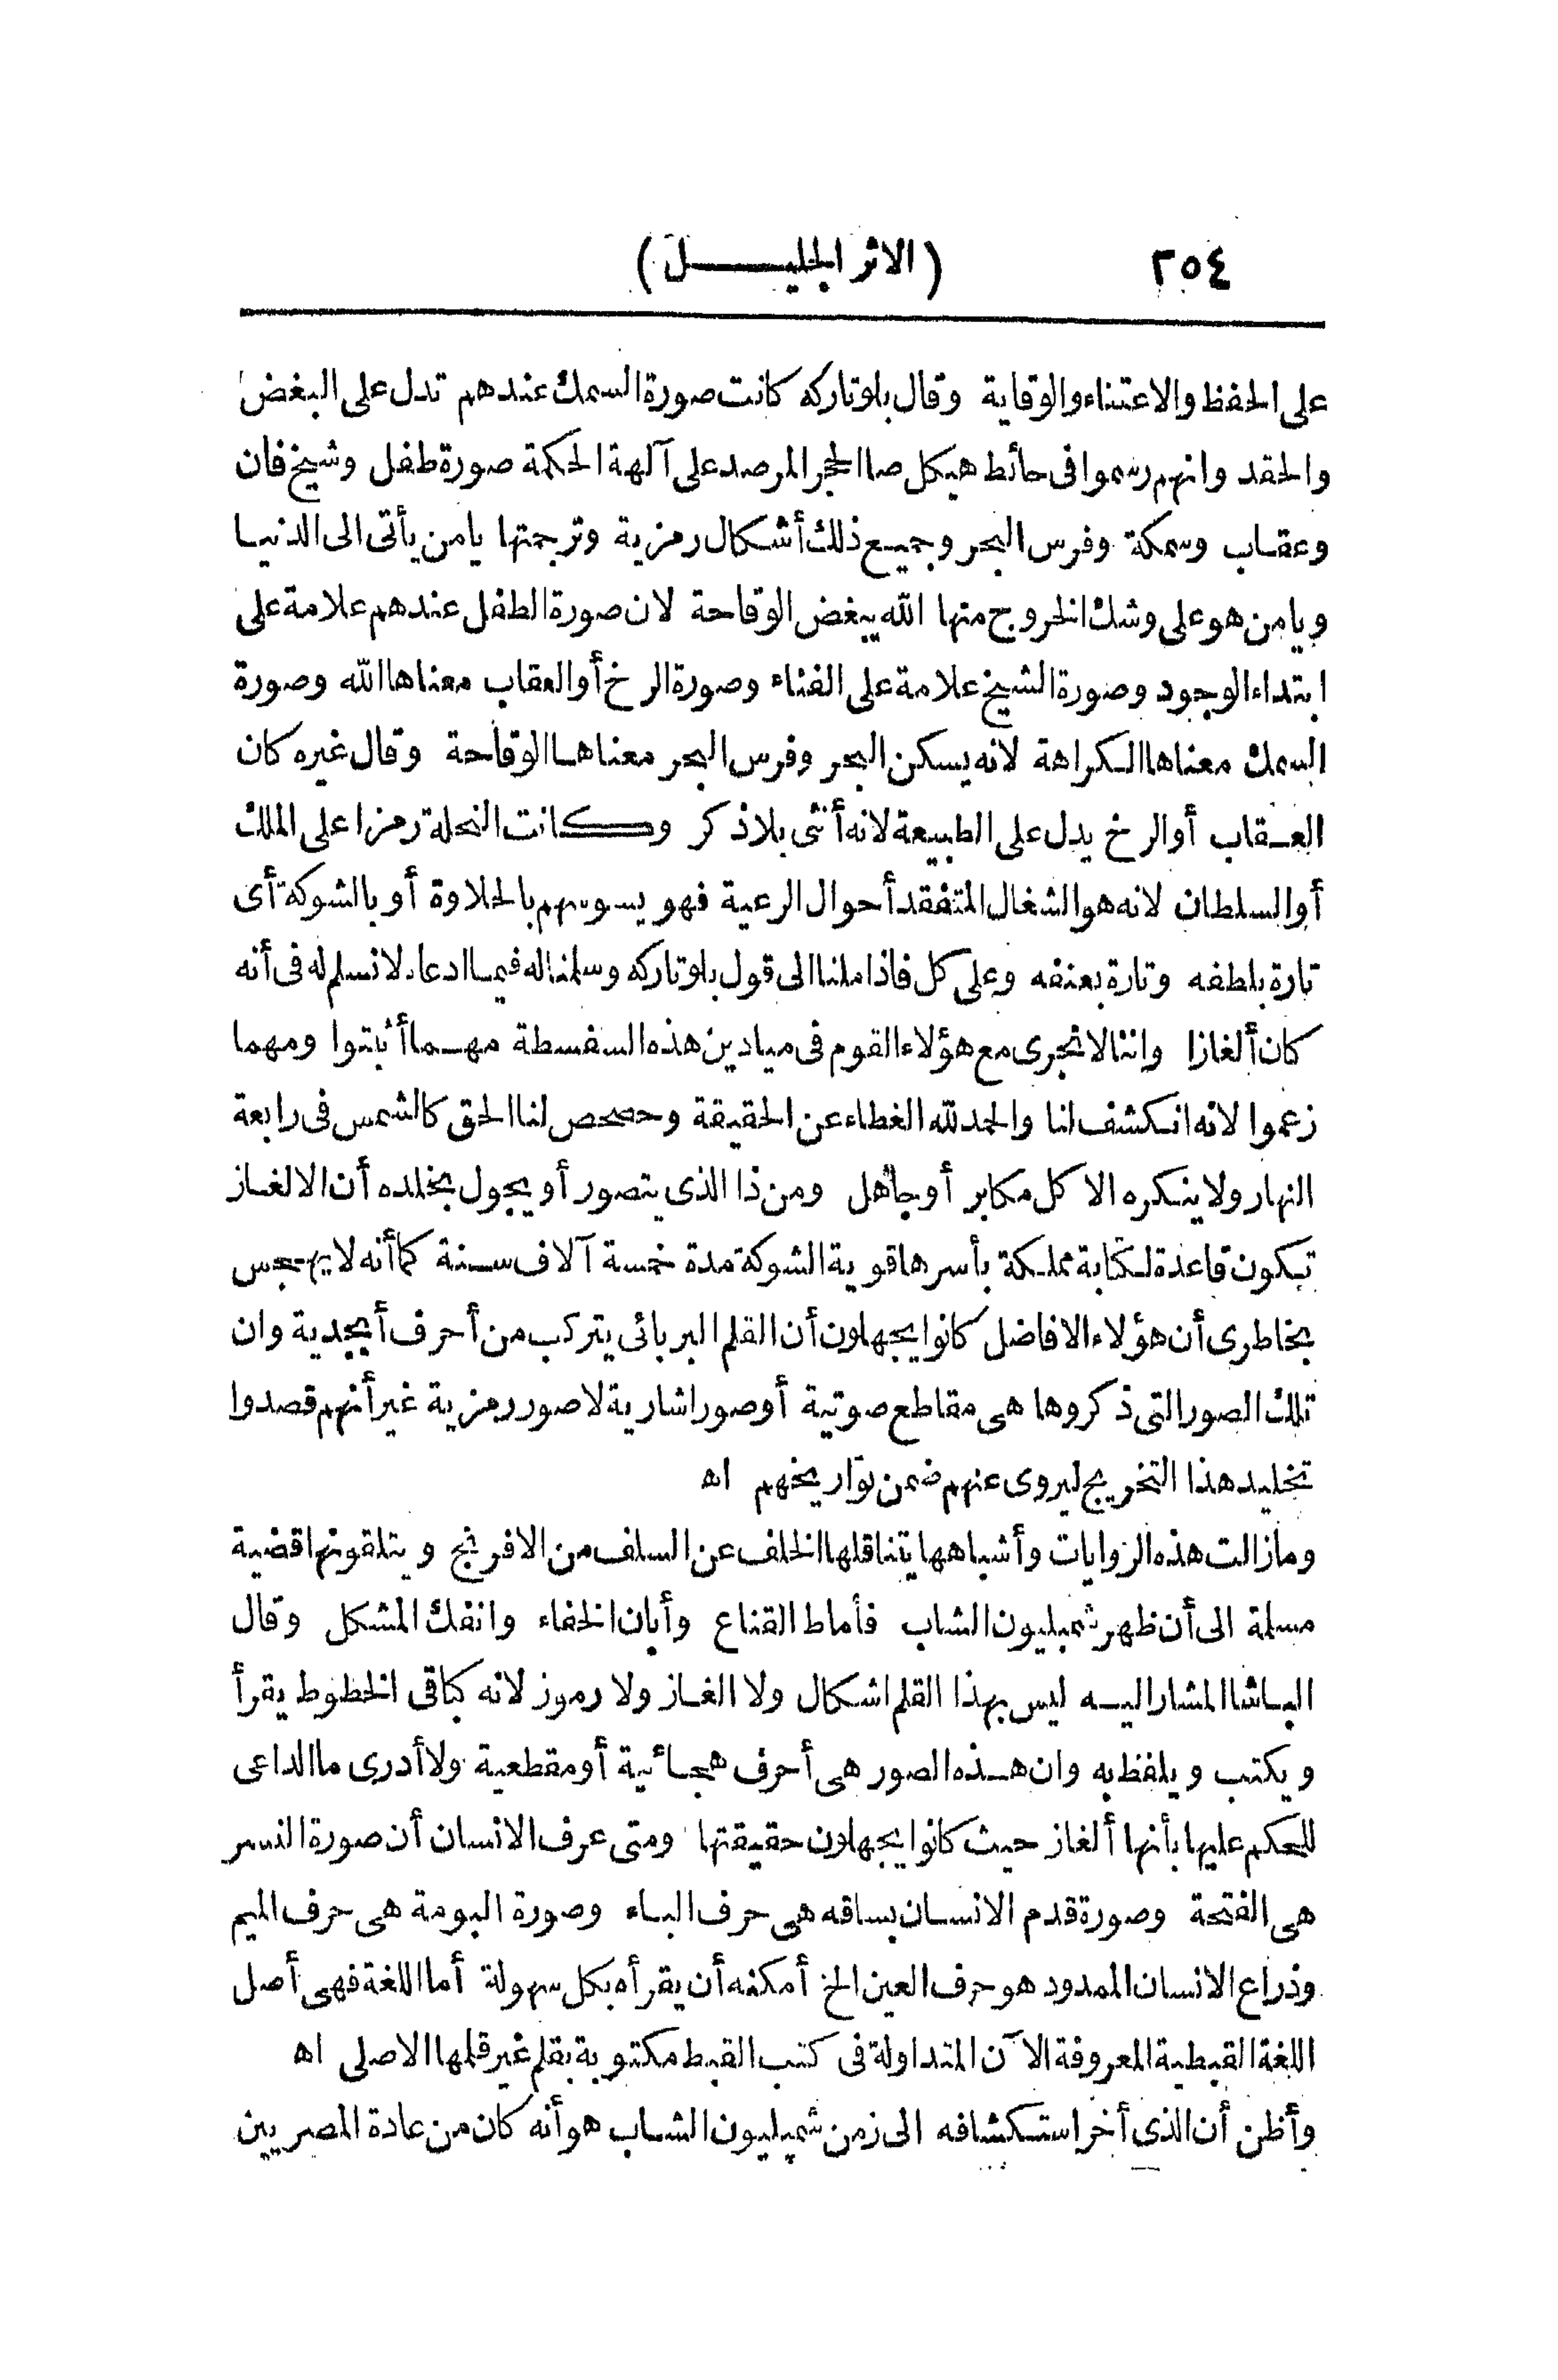 ٢٥٤ (الاثر الجليـــــل)
على الحفظ والاعتناء والوقاية وقال بلوتاركه كانت صورة السمك عندهم تدل على البغض
والحقد وانهم رسموا فى حائط هيكل صا الحجر المرصد على آلهة الحكمة صورة طفل وشيخ فان
وعقاب وسمكة وفرس البحر وجميع ذلك أشكال رمزية وترجمتها يا من يأتى الى الدنيا
ويا من هو على وشك الخروج منها الله يبغض الوقاحة لان صورة الطفل عندهم علامة على
ابتداء الوجود وصورة الشيخ علامة على الفناء وصورة الرخ أو العقاب معناها الله وصورة
السمك معناها الكراهة لانه يسكن البحر وفرس البحر معناها الوقاحة وقال غيره كان
العقاب أو الرخ يدل على الطبيعة لانه أنثى بلا ذكر وكانت النحلة رمزا على الملك
أو السلطان لانه هو الشغال المتفقد أحوال الرعية فهو يسوسهم بالحلاوة أو بالشوكة أى
تارة بلطفه وتارة بعنفه وعلى كل فاذا ملنا الى قول بلوتاركه وسلمنا له فيما ادعاه لا نسلم له فى أنه
كان ألغازا واننا لا نجرى مع هؤلاء القوم فى ميادين هذه السفسطة مهما أثبتوا ومهما
زعموا لانه انكشف لنا والحمد لله الغطاء عن الحقيقة وحصحص لنا الحق كالشمس فى رابعة
النهار ولا ينكره الا كل مكابر أو جاهل ومن ذا الذى يتصور أو يجول بخلده أن الالغاز
تكون قاعدة لكتابة مملكة بأسرها قوية الشوكة مدة خمسة آلاف سنة كما أنه لا يهجس
بخاطرى أن هؤلاء الافاضل كانوا يجهلون أن القلم البربائى يتركب من أحرف أبجدية وان
تلك الصور التى ذكروها هى مقاطع صوتية أو صور اشارية لا صور رمزية غير أنهم قصدوا
تخليد هذا التخريج ليروى عنهم ضمن تواريخهم اه
وما زالت هذه الروايات وأشباهها يتناقلها الخلف عن السلف من الافرنج ويتلقونها قضية
مسلمة الى أن ظهر شمبليون الشاب فأماط القناع وأبان الخفاء وانفك المشكل وقال
الباشا المشار اليه ليس بهذا القلم اشكال ولا الغاز ولا رموز لانه كباقى الخطوط يقرأ
ويكتب ويلفظ به وان هذه الصور هى أحرف هجائية أو مقطعية ولا أدرى ما الداعى
للحكم عليها بأنها ألغاز حيث كانوا يجهلون حقيقتها ومتى عرف الانسان أن صورة النسر
هى الفتحة وصورة قدم الانسان بساقه هى حرف الباء وصورة البومة هى حرف الميم
وذراع الانسان الممدود هو حرف العين الخ أمكنه أن يقرأه بكل سهولة أما اللغة فهى أصل
اللغة القبطية المعروفة الآن المتداولة فى كتب القبط مكتوبة بقلم غير قلمها الاصلى اه
وأظن أن الذى أخر استكشافه الى زمن شمپليون الشاب هو أنه كان من عادة المصريين